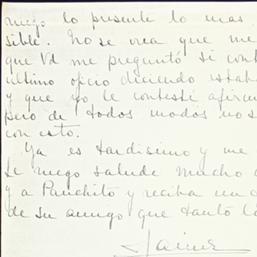 ruego lo presente lo mas
sible. No se crea que me
que Vd me preguntó si cont
ultimo opero diciendo estab
y que yo le contesti afirm
pero de todos modos no s
con esto.
Ya es tardisimo y me
Le ruego salude mucho a
y a Panchito y reciba un a
de su amigo que tanto lo
Jaime